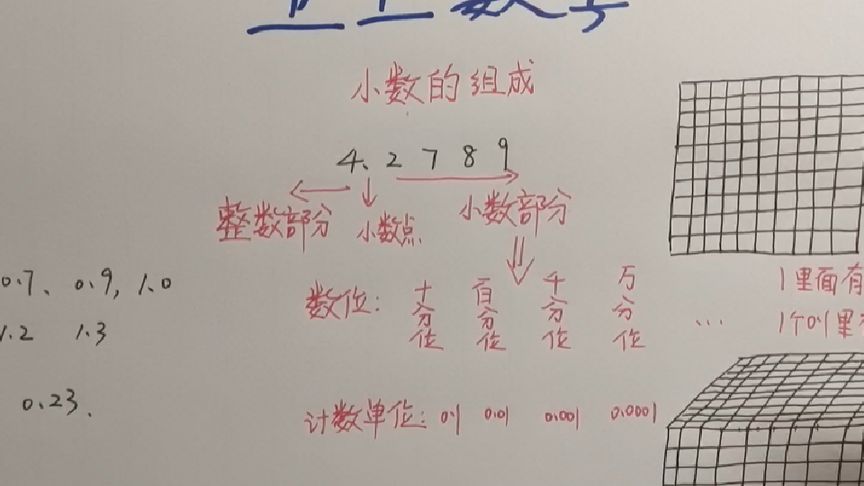 小数的组成
4.2789
整数部分 小数点 小数部分
0.7、0.9, 1.0
1.2 1.3
0.23、
数位: 十分位 百分位 千分位 万分位 ...
计数单位: 0.1 0.01 0.001 0.0001
1里面有
1个0.1里